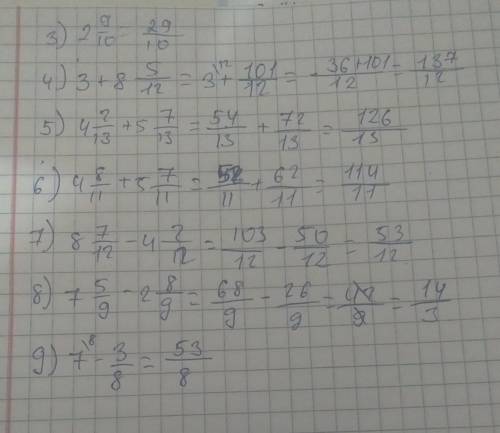 3) 2 9/10 = 29/10
4) 3 + 8 5/12 = 3\12 + 101/12 = 36+101/12 = 137/12
5) 4 2/13 + 5 7/13 = 54/13 + 72/13 = 126/13
6) 4 8/11 + 5 7/11 = 52/11 + 62/11 = 114/11
7) 8 7/12 - 4 2/12 = 103/12 - 50/12 = 53/12
8) 7 5/9 - 2 8/9 = 68/9 - 26/9 = 42/9 = 14/3
9) 7\8 - 3/8 = 53/8